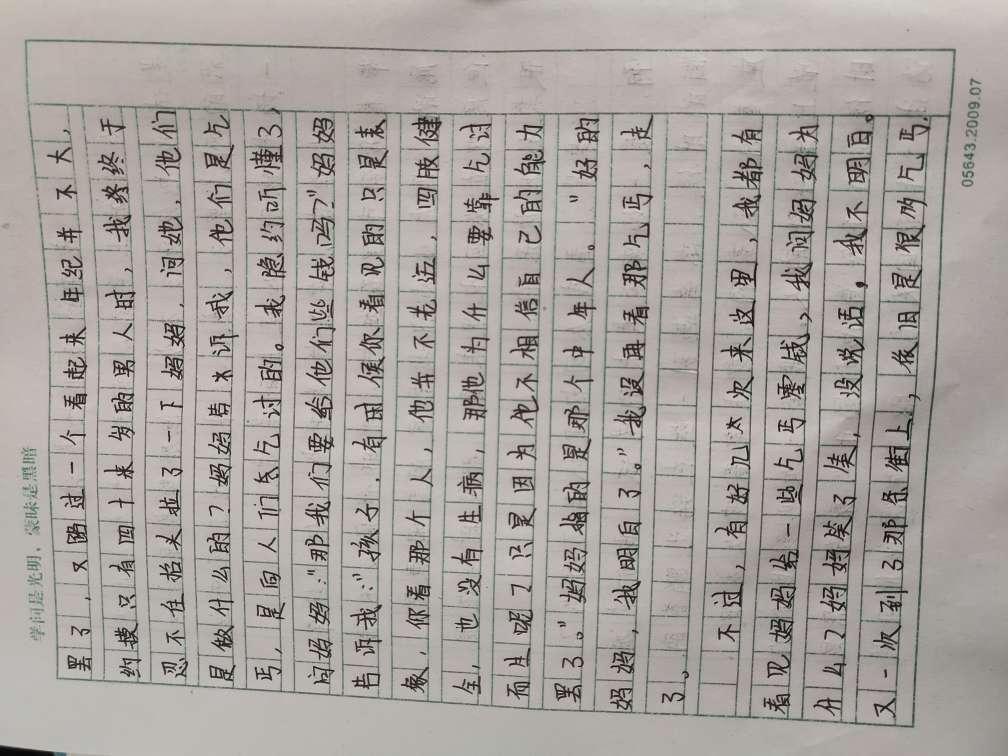 学问是光明，蒙昧是黑暗
罢了，又路过一个看起来年纪并不大，
约摸只有四十来岁的男人时，我终终于
忍不住抬头拉了一下妈妈，问她，他们
是做什么的？妈妈告诉我，他们是乞
丐，是向人们乞讨的。我隐约听懂了，
问妈妈：“那我们要给他们些钱吗？”妈妈
告诉我：“孩子，有时候你看见的只是表
象，你看那个人，他并不老迈，四肢健
全，也没有生病，那他为什么要靠乞讨
而生呢？只是因为他不相信自己的能力
罢了。”妈妈指的是那个中年人。“好的
妈妈，我明白了。”我没再看那乞丐，走
了。
不过，有好几次来这里，我都有
看见妈妈给一些乞丐零钱，我问妈妈为
什么？妈妈笑了笑，没说话，我不明白。
又一次到了那条街上，依旧是很多乞丐，
05643.2009.07